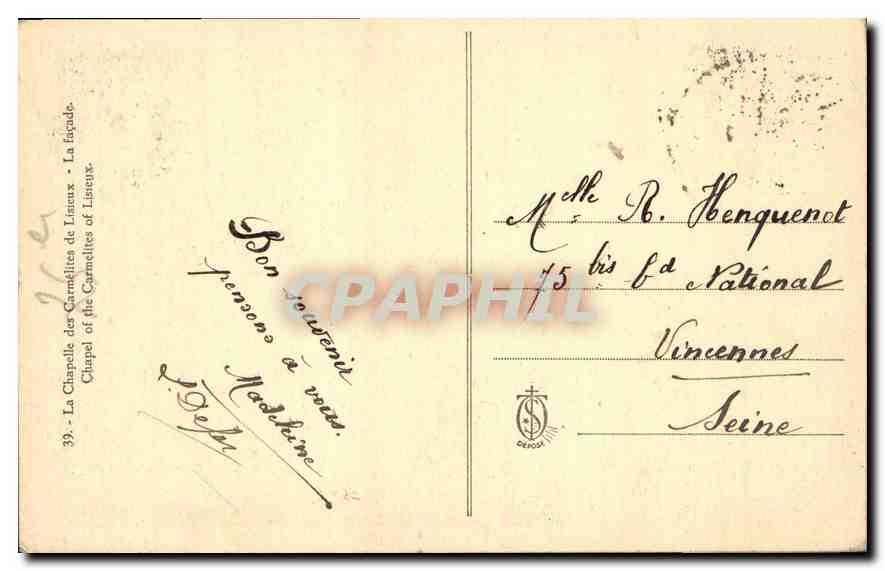 39. - La Chapelle des Carmélites de Lisieux - La façade.
Chapel of the Carmelites of Lisieux.
Bon souvenir
pensons à vous.
Madeleine
CPAPHIL
Melle R. Henquenot
75 bis bd National
Vincennes
Seine
DÉPOSÉ